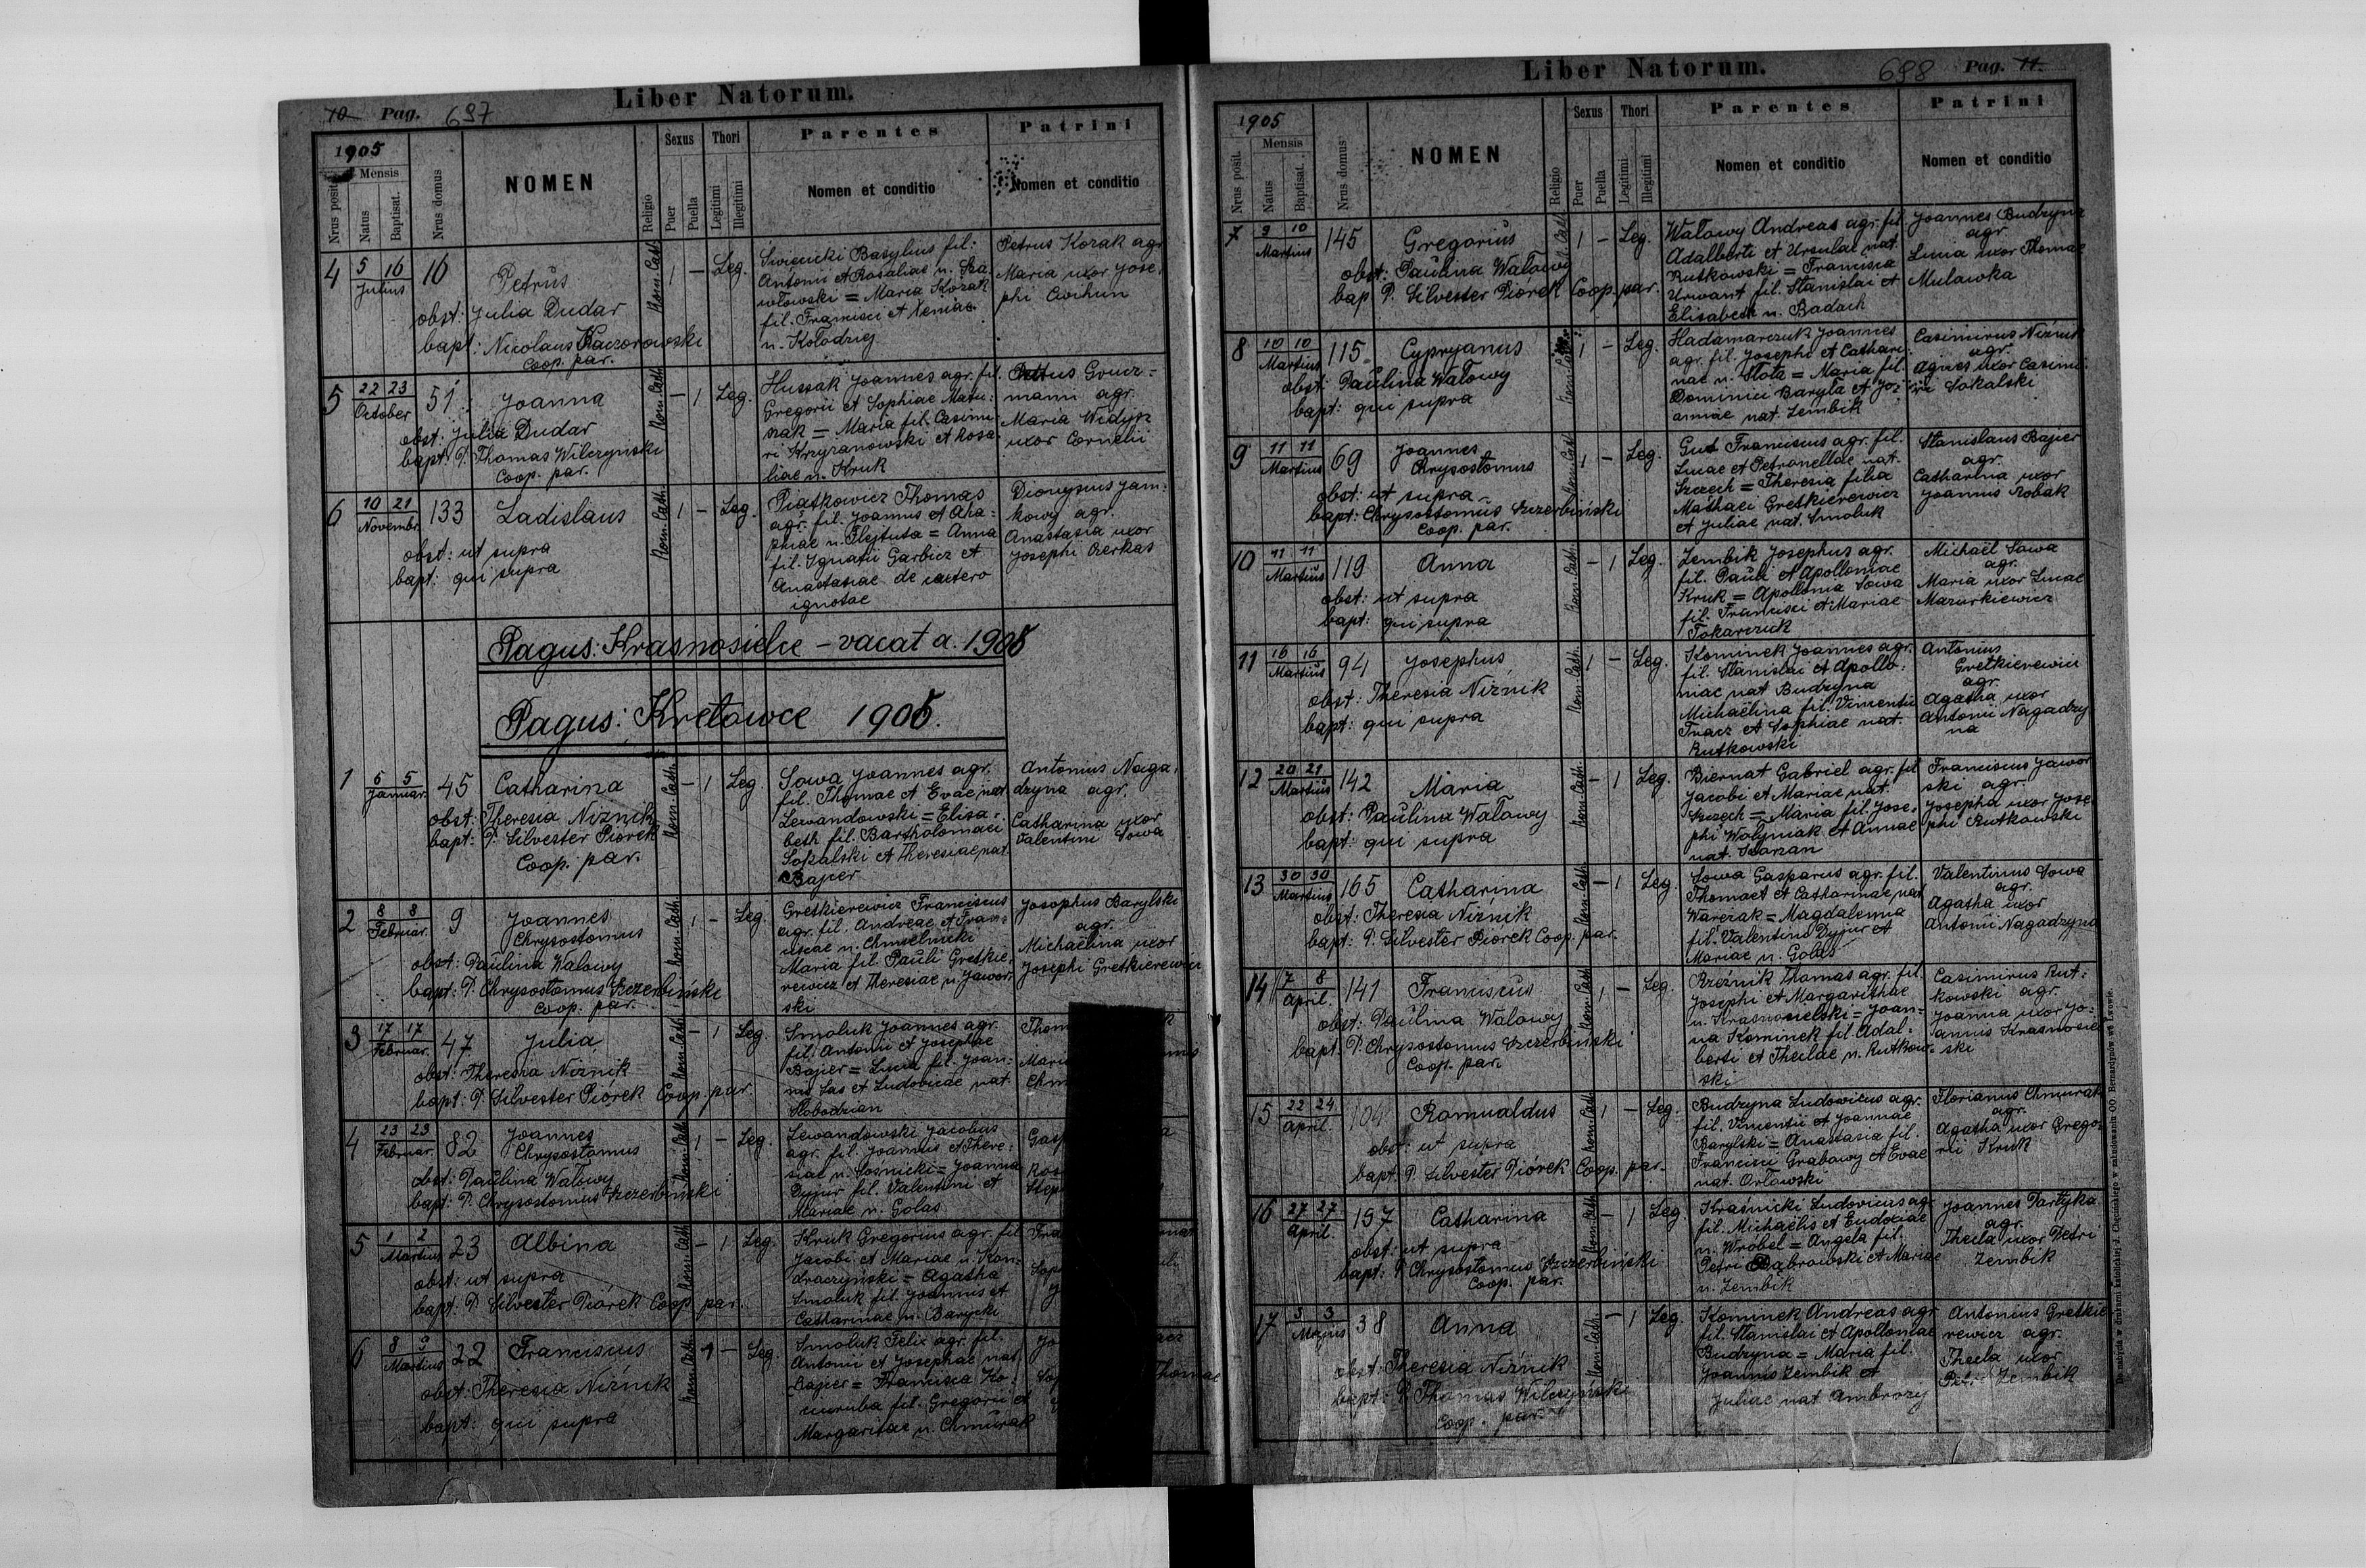 10 Pag. 697
Liber Natorum.
1905
Mensis
Nrus posit.
Natus
Baptisat.
Nrus domus
NOMEN
Religio
Sexus
Puer
Puella
Thori
Legitimi
Illegitimi
Parentes
Nomen et conditio
Patrini
Nomen et conditio
4 5 16 Julius 16 Petrus Rom. Cath. 1 – Leg.
obst: Julia Dudar
bapt: Nicolaus Kaczorowski
Coop. par.
Basylius fil.
Antonii et Rosaliae n.
= Maria Kozak
fil. Francisci et Xeniae
n. Kołodziej
Petrus Kozak agr
Maria uxor Jose
phi
5 22 23 October 51 Joanna Rom. Cath. – 1 Leg.
obst: Julia Dudar
bapt: P. Thomas Wilczyński
Coop. par.
Hussak Joannes agr. fil.
Gregorii et Sophiae Matu:
szak = Maria fil. Casimi:
ri Krzyzanowski et Rosa:
liae n. Kruk
mann agr.
Maria
uxor Cornelii
6 10 21 Novembr. 133 Ladislaus Rom. Cath. 1 – Leg.
obst: ut supra
bapt: qui supra
Piatkowicz Thomas
agr. fil. Joannis et Aha:
phiae n. = Anna
fil. Ignatii Garbicz et
Anastasiae de caetero
ignotae
Dionysius Jam:
kowy agr.
Anastasia uxor
Josephi Czerkas
Pagus: Krasnosielce – vacat a. 1905
Pagus: Kretowce 1905.
1 5 Januar. 45 Catharina Rom. Cath. – 1 Leg.
obst: Theresia Niznik
bapt: P. Silvester Piórek
Coop. par.
Sowa Joannes agr.
fil. Thomae et Evae nat
Lewandowski = Elisa:
beth fil. Bartholomaei
Sokalski et Theresiae nat.
Bajier
Antonius Naga:
dzyna agr.
Catharina uxor
Valentini Sowa
2 8 8 Februar. 9 Joannes Rom. Cath. 1 – Leg.
Chrysostomus
obst: Paulina Walowy
bapt: P. Chrysostomus Szczerbiński
Coop. par.
Gretkierewicz Franciscus
agr. fil. Andreae et Fran:
ciscae n. Chmielnicki
Maria fil. Pauli Gretkie:
rewicz et Theresiae n. Jawor:
ski
Josephus Barylski
agr.
Michaëlina uxor
Josephi Gretkierewicz
3 17 17 Februar. 47 Julia Rom. Cath. – 1 Leg.
obst: Theresia Niznik
bapt: P. Silvester Piórek Coop. par.
Smoluk Joannes agr.
fil. Antonii et Josephae
Bajier = Lucia fil. Joan:
nis Las et Ludovicae nat.
Slobodzian
Thom
Mari
Chm
4 23 23 Februar. 82 Joannes Rom. Cath. 1 – Leg.
Chrysostomus
obst: Paulina Walowy
bapt: P. Chrysostomus Szczerbiński
Lewandowski Jacobus
agr. fil. Joannis et There:
siae n. Sosnicki = Joanna
Dyjur fil. Valentini et
Mariae n. Golas
Gasp
Ros
Step
5 1 2 Martius 23 Albina Rom. Cath. – 1 Leg.
obst: ut supra
bapt: P. Silvester Piórek Coop. par.
Kruk Gregorius agr. fil
Jacobi et Mariae n. Kon:
draczyński = Agatha
Smoluk fil. Joannis et
Catharinae n. Barycki
Fra
Sop
6 8 9 Martius 22 Franciscus Rom. Cath. 1 – Leg.
obst: Theresia Niznik
bapt: qui supra
Smoluk Felix agr. fil.
Antonii et Josephae nat
Bajier = Francisca Ko:
curuba fil. Gregorii et
Margaritae n. Chmurak
Jo
Sop
Thomae
Liber Natorum.
698 Pag. 11.
1905
Mensis
Nrus posit.
Natus
Baptisat.
Nrus domus
NOMEN
Religio
Sexus
Puer
Puella
Thori
Legitimi
Illegitimi
Parentes
Nomen et conditio
Patrini
Nomen et conditio
7 9 10 Martius 145 Gregorius Rom. Cath. 1 – Leg.
obst: Paulina Walowy
bap P. Silvester Piórek Coop. par.
Walowy Andreas agr. fil.
Adalberti et Ursulae nat.
Rutkowski = Francisca
Urwant fil. Stanislai et
Elisabeth n. Badach
Joannes Budzyna
agr.
Lucia uxor Thomae
Mulawka
8 10 10 Martius 115 Cypryanus Rom. Cath. 1 – Leg.
obst: Paulina Walowy
bapt: qui supra
Hadamarczuk Joannes
agr. fil. Josephi et Cathari:
nae n. Slota = Maria fil.
Dominici Baryla et Jo:
annae nat. Zembik
Casimirus Niznik
agr.
Agnes uxor Casimi:
ri Sokalski
9 11 11 Martius 69 Joannes Rom. Cath. 1 – Leg.
Chrysostomus
obst: ut supra
bapt: Chrysostomus Szczerbiński
Coop. par.
Gut Franciscus agr. fil.
Lucae et Petronellae nat.
Szczech = Theresia filia
Mathaei Gretkierewicz
et Juliae nat. Smoluk
Stanislaus Bajier
agr.
Catharina uxor
Joannis Robak
10 11 11 Martius 119 Anna Rom. Cath. – 1 Leg.
obst: ut supra
bapt: qui supra
Zembik Josephus agr.
fil. Pauli et Apolloniae
Kruk = Apollonia Sowa
fil. Francisci et Mariae
Tokarczuk
Michaël Sawa
agr.
Maria uxor Lucae
Mazurkiewicz
11 16 16 Martius 94 Josephus Rom. Cath. 1 – Leg.
obst: Theresia Niznik
bapt: qui supra
Kominek Joannes agr.
fil. Stanislai et Apollo:
niae nat Budzyna
Michaëlina fil. Vincentii
Tracz et Sophiae nat.
Rutkowski
Antonius
Gretkierewicz
agr.
Agatha uxor
Antonii Nagadzy
na
12 20 21 Martius 142 Maria Rom. Cath. – 1 Leg.
obst: Paulina Walowy
bapt: qui supra
Biernat Gabriel agr. fil
Jacobi et Mariae nat.
Szczech = Maria fil. Jose:
phi Wołyniak et Annae
nat.
Franciscus Jawor
ski agr.
Josepha uxor Jose
phi Rutkowski
13 30 30 Martius 165 Catharina Rom. Cath. – 1 Leg.
obst: Theresia Niznik
bapt: P. Silvester Piorek Coop. par.
Sowa Gasparus agr. fil.
Thomae et Catharinae nat
= Magdalenna
fil. Valentini Dyjur et
Mariae n. Golas
Valentinus Sowa
agr.
Agatha uxor
Antonii Nagadzyna
14 7 8 April. 141 Franciscus Rom. Cath. 1 – Leg.
obst: Paulina Walowy
bapt. P. Chrysostomus Szczerbiński
Coop. par.
Rzéznik Thomas agr. fil.
Josephi et Margarithae
n. Krasnosielski = Joan:
na Kominek fil. Adal:
berti et Theclae n. Rutkow:
ski
Casimirus Rut:
kowski agr.
Joanna uxor Jo:
annis Krasnosiel
ski
15 22 24 April. 104 Romualdus Rom. Cath. 1 – Leg.
obst: ut supra
bapt P. Silvester Piórek Coop. par.
Budzyna Ludovicus agr.
fil. Vincentii et Joannae
Barylski = Anastasia fil.
Francisci Grabowy et Evae
nat. Orlowski
Florianus Chmurak
agr.
Agatha uxor Grego:
rii Kruk
16 27 27 April. 157 Catharina Rom. Cath. – 1 Leg.
obst: ut supra
bapt: P. Chrysostomus Szczerbiński
Coop. par.
Kraśnicki Ludovicus agr
fil. Michaëlis et Eudoxiae
n. Wróbel = Angela fil.
Petri Dąbrowski et Mariae
n. Zembik
Joannes Partyka
agr.
Thecla uxor Petri
Zembik
17 3 3 Majus 38 Anna Rom. Cath. – 1 Leg.
obst: Theresia Niznik
bapt: P. Thomas Wilczyński
Coop. par.
Kominek Andreas agr
fil. Stanislai et Apolloniae
Budzyna = Maria fil.
Joannis Zembik et
Juliae nat Ambrozij
Antonius Gretkie
rewicz agr.
Thecla uxor
Petri Zembik
Do nabycia w drukarni katolickiej J. Chęcińskiego w zabudowaniu OO. Bernardynów we Lwowie.